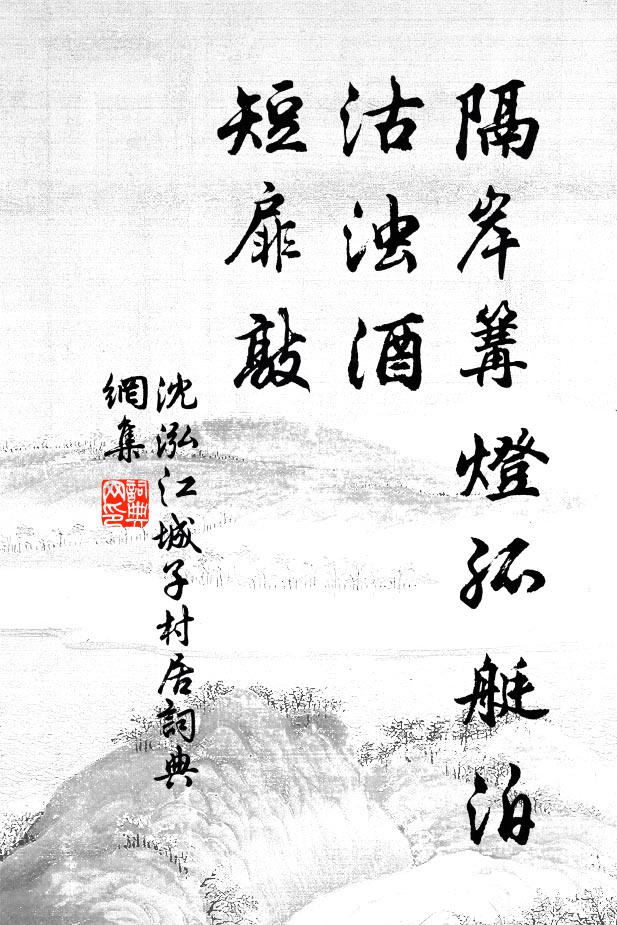 隔岸篝燈孤艇泊
沽浊酒
短扉敲
沈泓江城子村居詞典
網集
詞典
网印